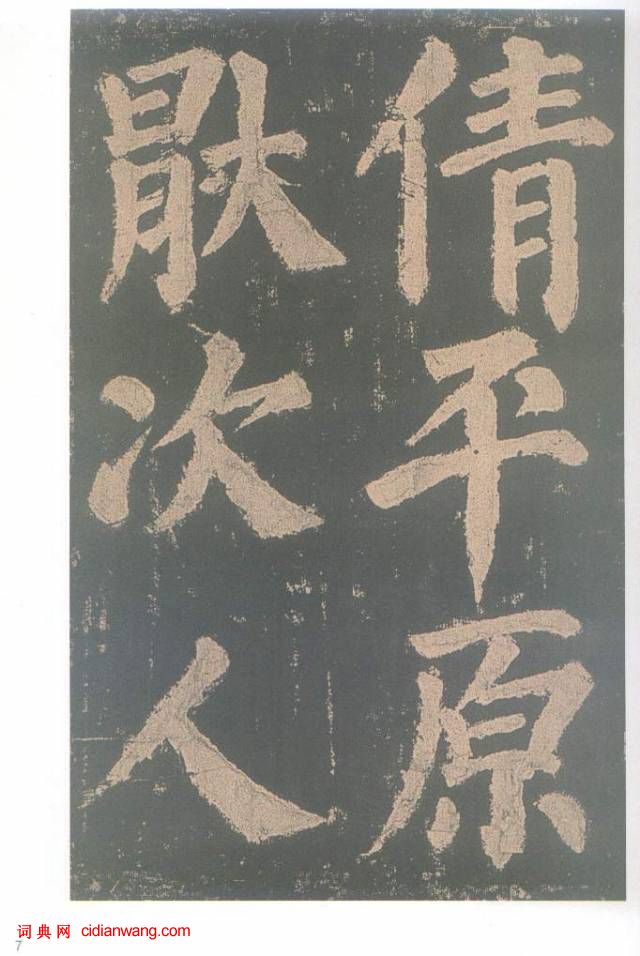 倩平原
猒次人
词典网 cidianwang.com
7